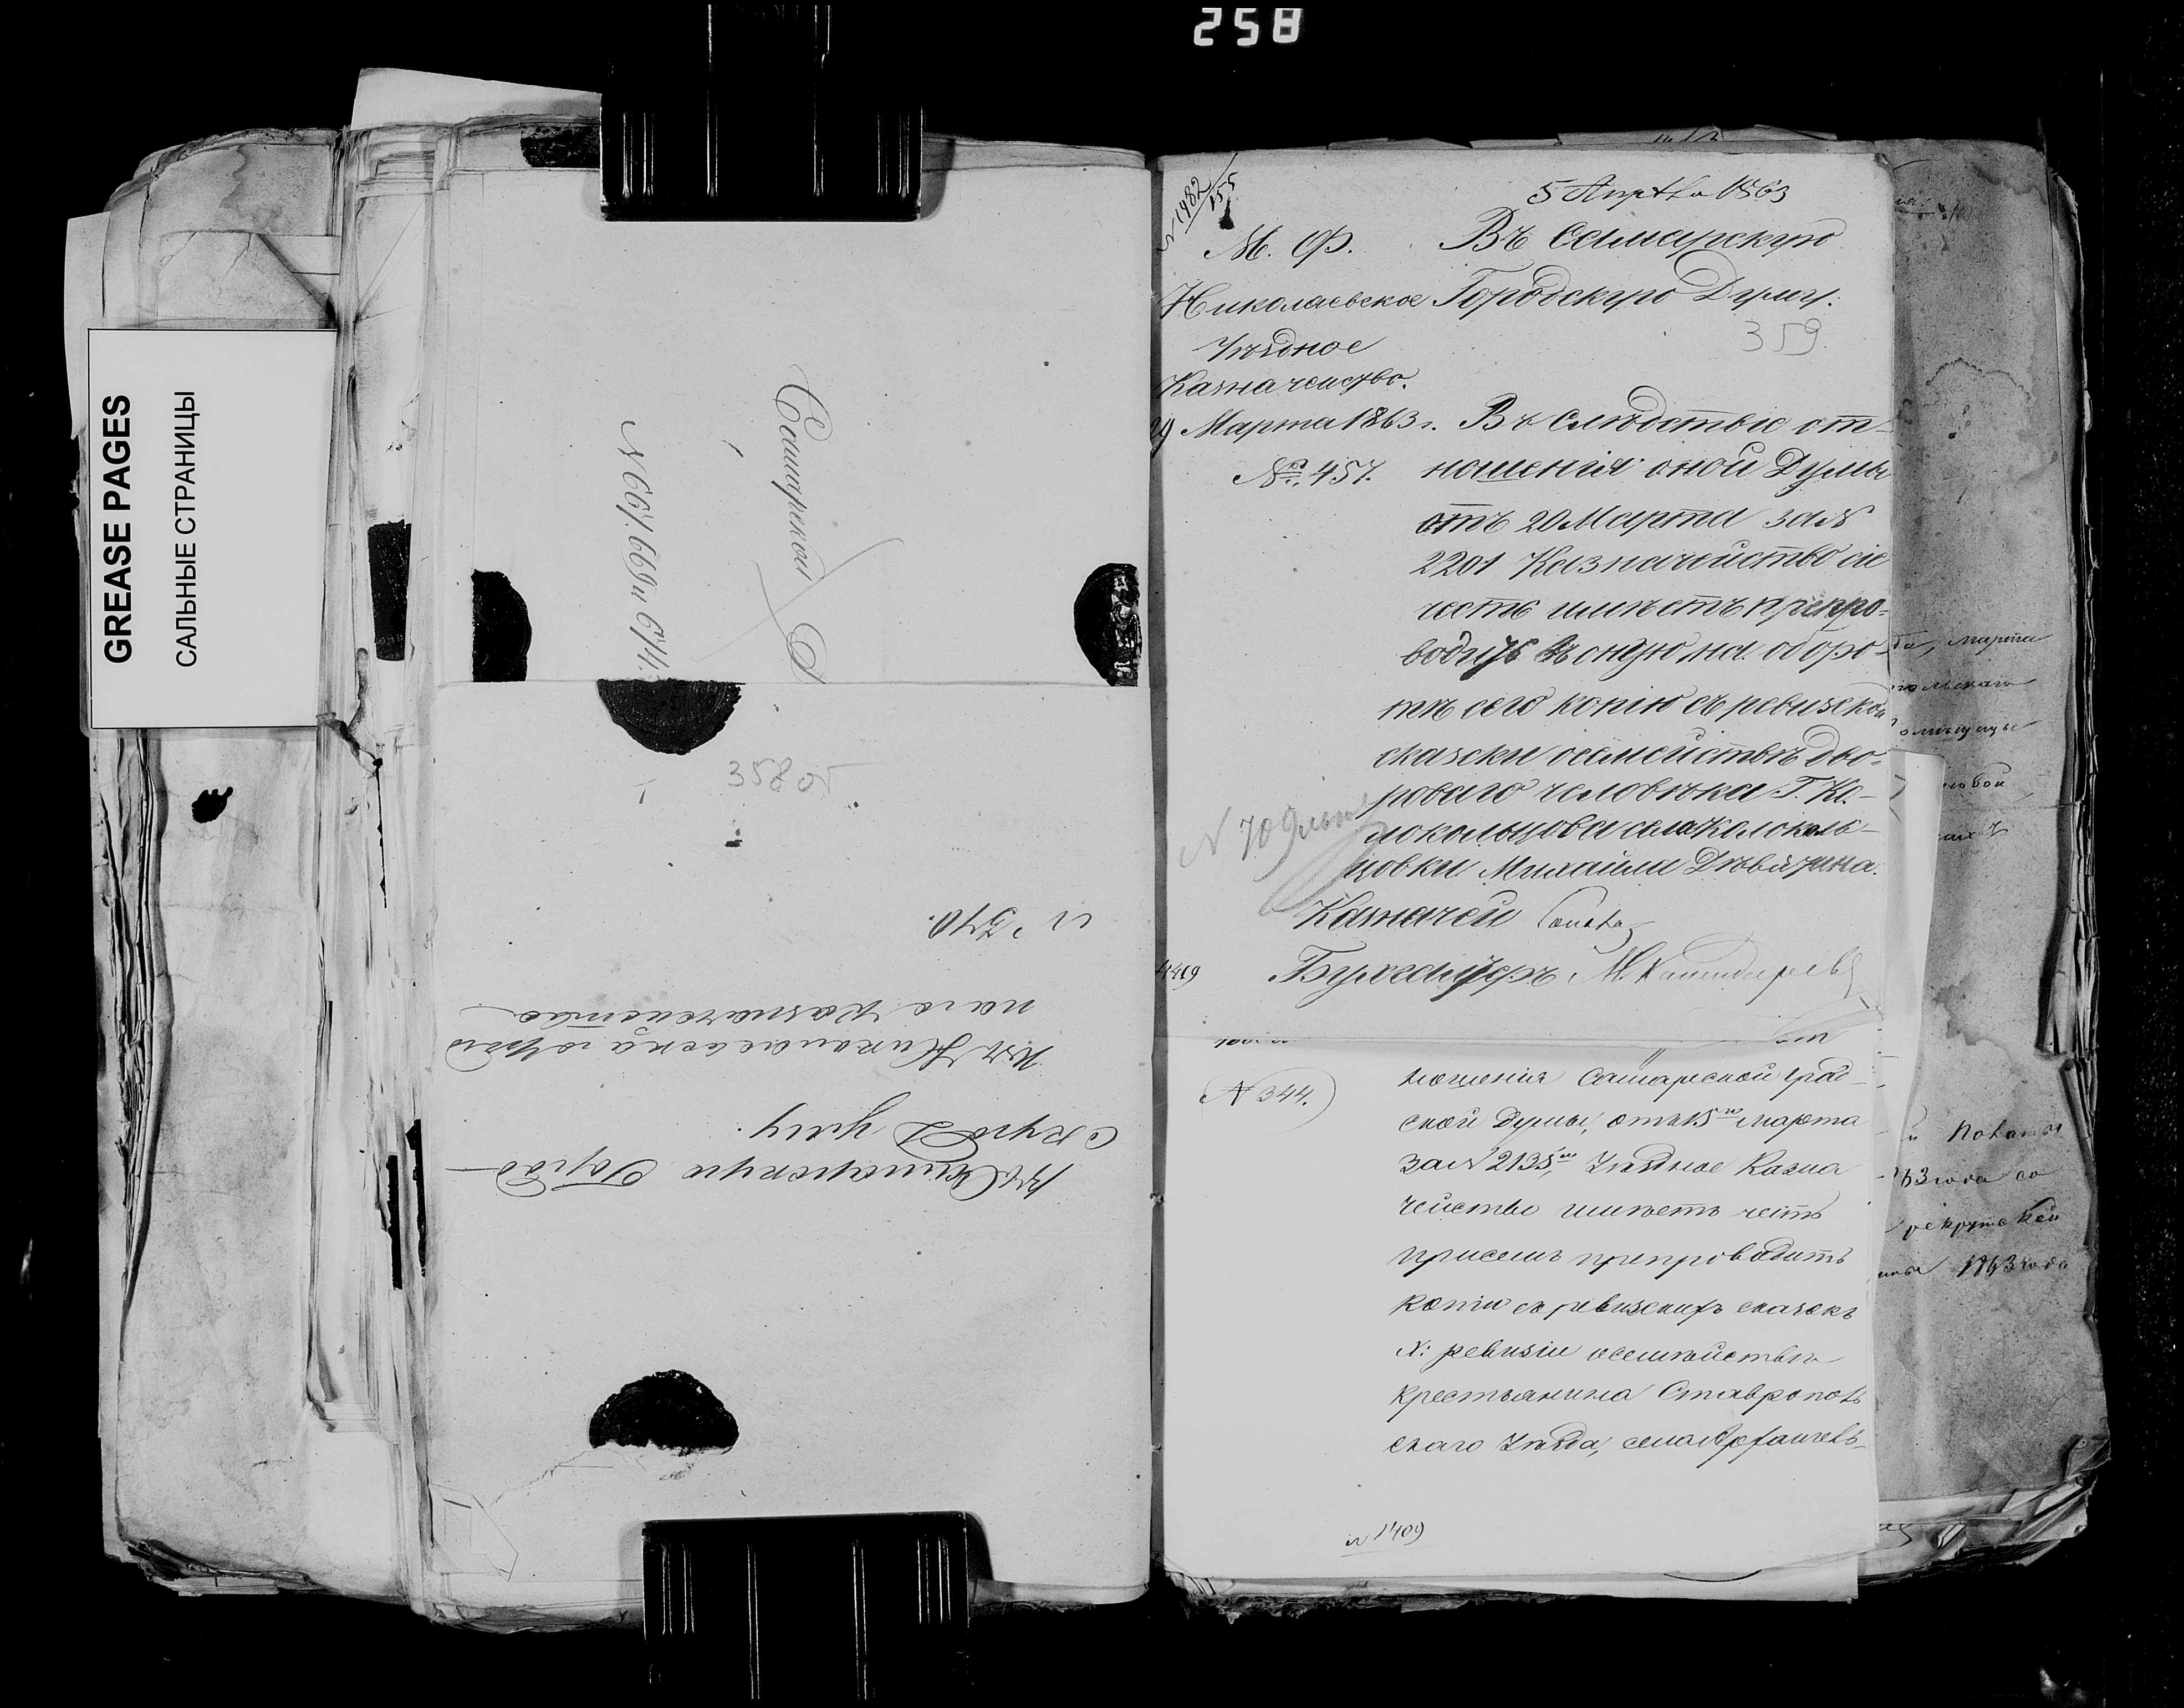 258
GREASE PAGES
САЛЬНЫЕ СТРАНИЦЫ
Самарской Д
N 667. 669 и 674.
358 об
N 570.
Въ Самарскую Город
скую Думу.
Изъ Николаевскаго Уѣзд
наго Казначейства
N 1482
155
5 Апрѣля 1863
М. Ф.
Николаевское
Уѣздное
Казначейство.
29 Марта 1863 г.
№ 457.
Въ Самарскую
Городскую Думу.
359.
Въ слѣдствіе от-
ношенія оной Думы
отъ 20 Марта за N
2201 Казначейство сіе
честь имѣетъ препро-
водить въ оную, на оборо-
тѣ сего копію съ ревизской
сказски осемействѣ дво-
роваго человѣка Г. Ко-
локольцова села Колоколь-
цовки Михайла Дѣвятина.
N 709
Казначей
Бухгалтеръ
1409
N 344.
ношенія Самарской град-
ской Думы, отъ 15го марта
за N 2135м, Уѣздное Казна
чейство имѣетъ честь
присемъ препроводить
копіи съ ревизскихъ сказокъ
X: ревизіи осемѣйствѣ
крестьянина Ставрополь
скаго Уѣзда, села
N 1409
марта
польскаго
63 года со
рекрутской
1863 года